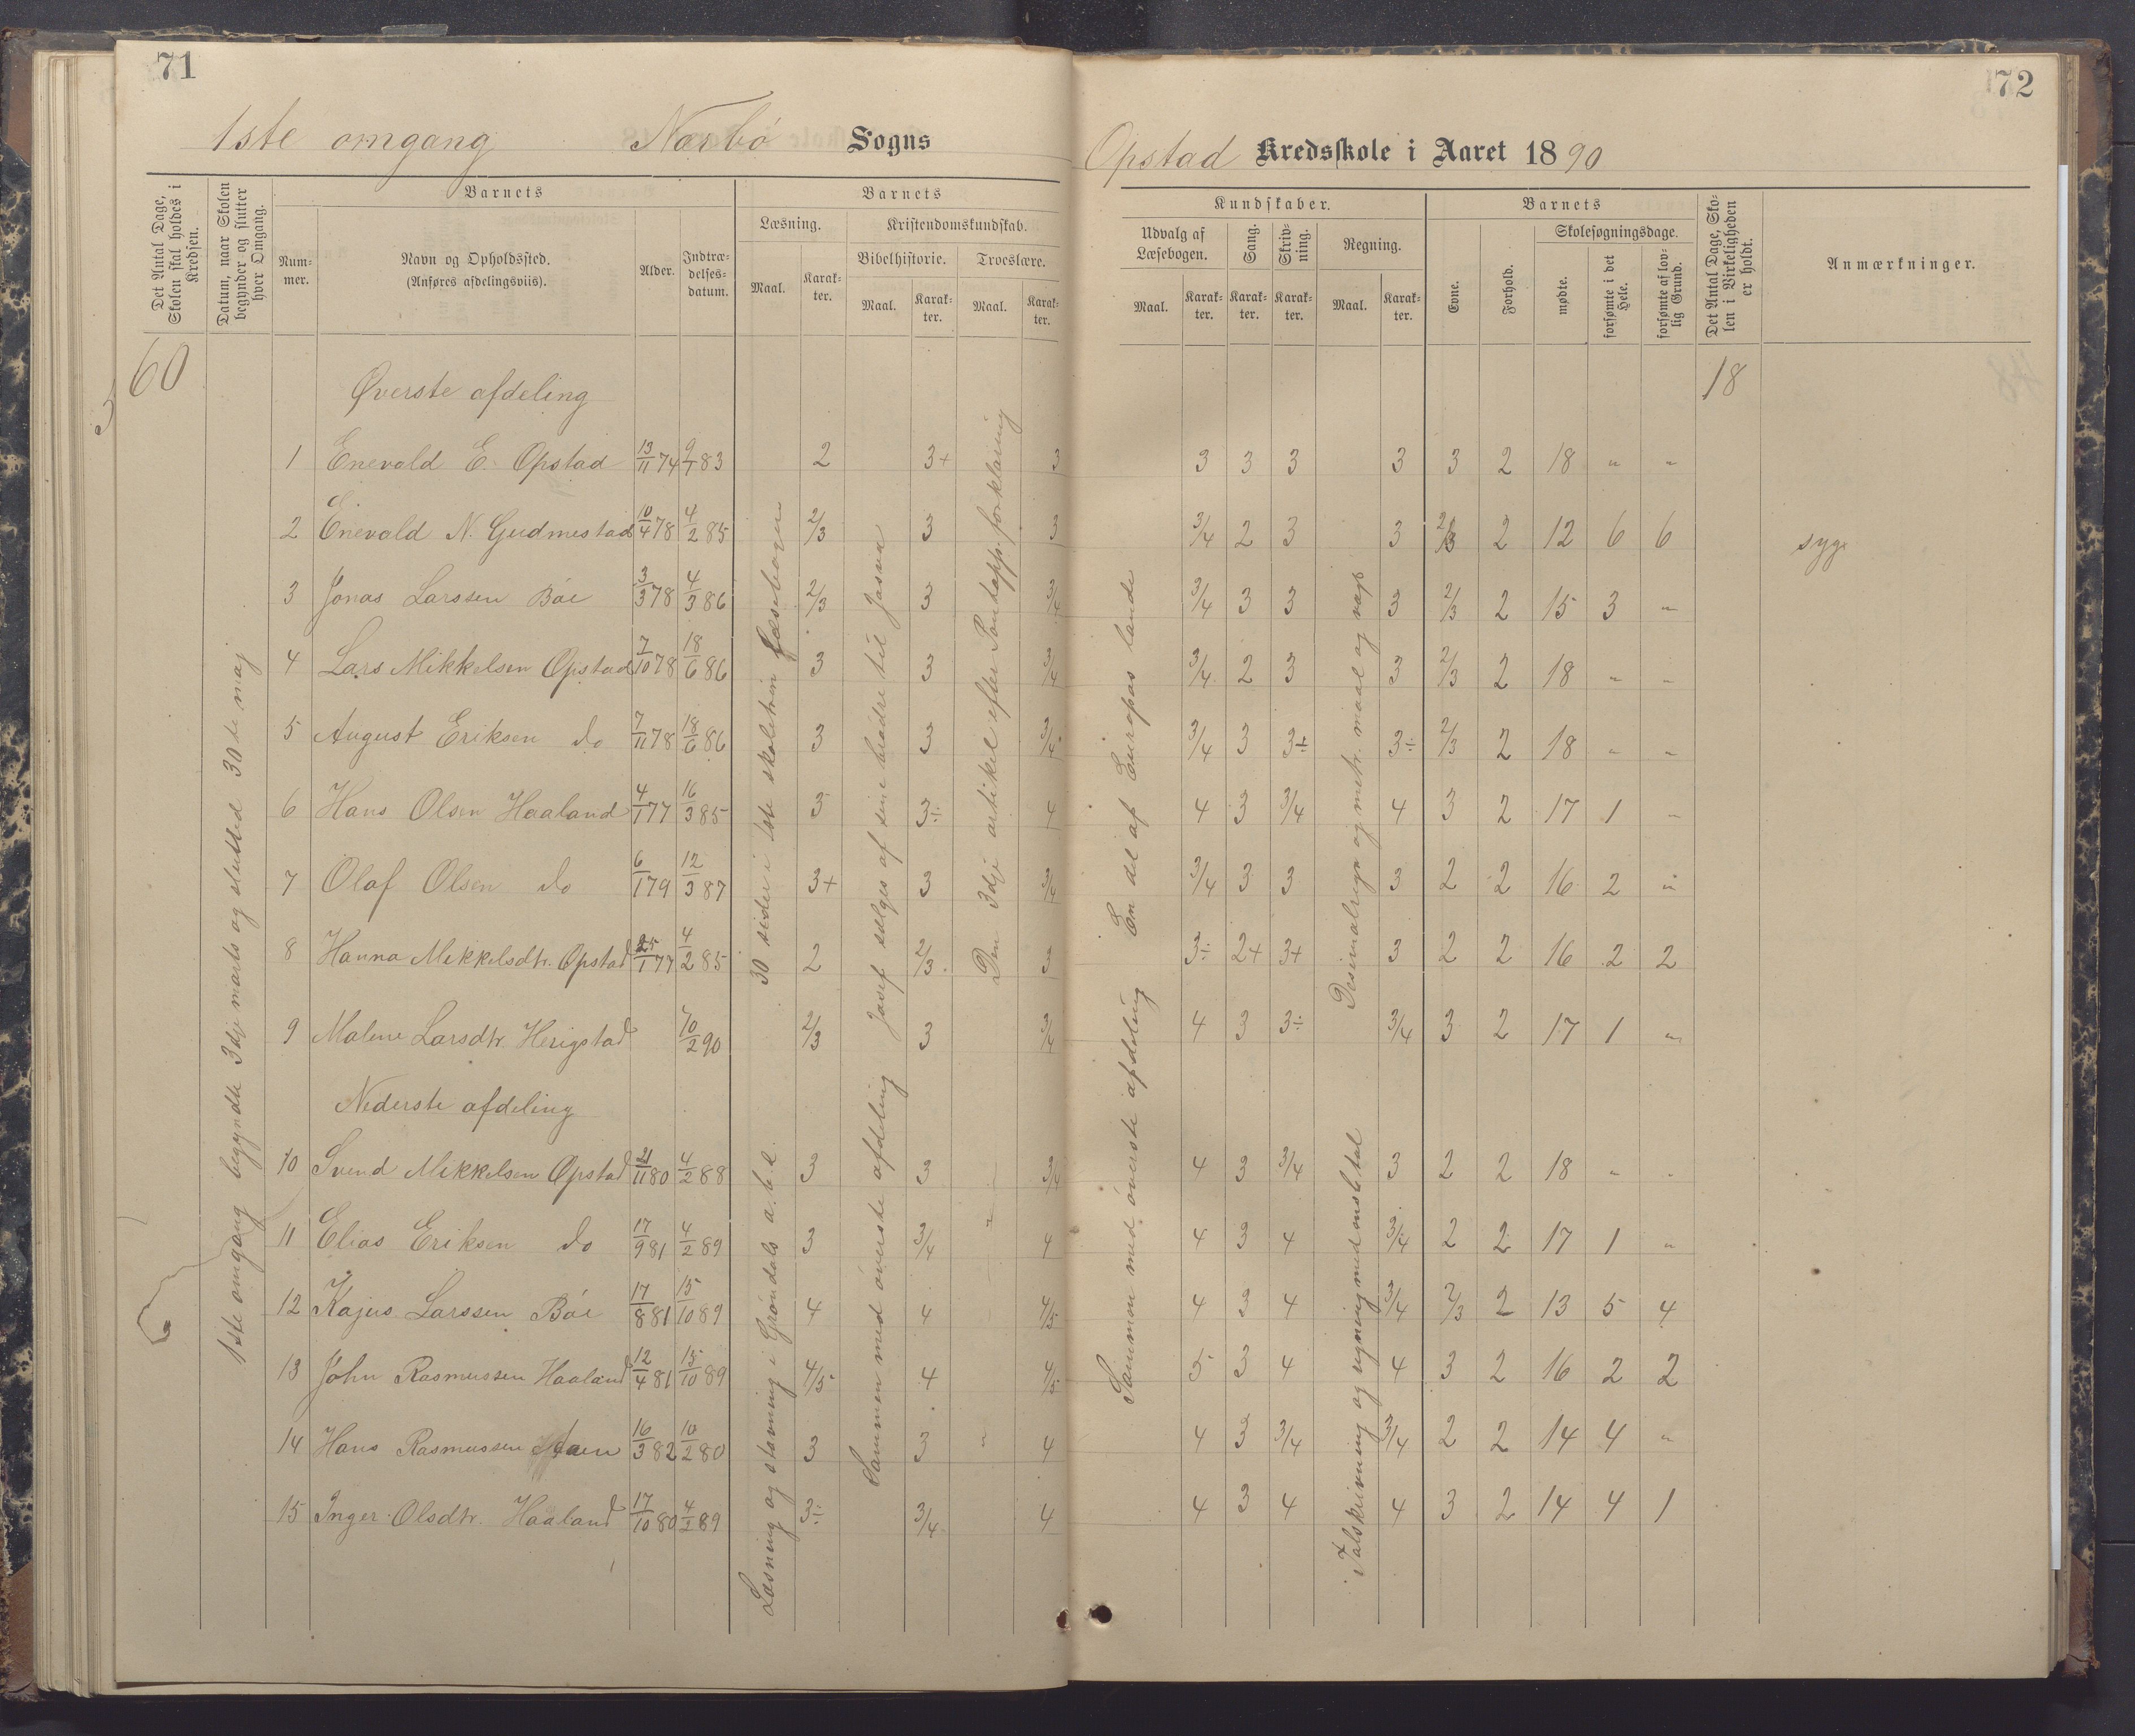 71
1ste omgang Narbö Sogns
Det Antal Dage, Skolen skal holdes i Kredsen.
Datum, naar Skolen begynder og slutter hver Omgang.
Barnets
Nummer.
Navn og Opholdssted.
(Anføres afdelingsviis).
Alder.
Indtrædelses-datum.
Barnets
Læsning.
Maal.
Karakter.
Kristendomskundskab.
Bibelhistorie.
Maal.
Karakter.
Troeslære.
Maal.
Karakter.
60
1ste omgang begyndte 3dje marts og slutted 30te maj
Øverste afdeling
1 Enevald E. Opstad 13/11 74 9/1 83 2 3+ 3
2 Enevald N. Gudmestad 10/4 78 4/2 85 2/3 3 3
3 Jonas Larssen Böe 3/3 78 4/3 86 2/3 3 3/4
4 Lars Mikkelsen Opstad 7/10 78 18/6 86 3 3 3/4
5 August Eriksen do 7/11 78 18/6 86 3 3 3/4
6 Hans Olsen Haaland 4/1 77 16/3 85 3 3÷ 4
7 Olaf Olsen do 6/1 79 12/3 87 3+ 3 3/4
8 Hanna Mikkelsdtr. Opstad 25/1 77 4/2 85 2 2/3 3
9 Malene Larsdtr. Herigstad 10/2 90 2/3 3 3/4
Nederste afdeling
10 Svend Mikkelsen Opstad 21/11 80 4/2 88 3 3 3/4
11 Elias Eriksen do 17/9 81 4/2 89 3 3/4 " 4
12 Kajus Larssen Böe 17/8 81 15/10 89 4 4 4/5
13 John Rasmussen Haaland 12/4 81 15/10 89 4/5 4 4/5
14 Hans Rasmussen 16/3 82 10/2 80 3 3 " 4
15 Inger Olsdtr. Haaland 17/10 80 4/2 89 3÷ 3/4 4
30 sider i 1ste skoletrin læsebogen
Læsning og stavning i Gröndals a.b.c.
Josef sælges af sine brödre til Josva
Sammen med överste afdeling
Den 3dje artikel efter Pontopp. forklaring
72
Opstad Kredsskole i Aaret 1890
Kundskaber.
Udvalg af Læsebogen.
Maal.
Karakter.
Sang.
Karakter.
Skrivning.
Karakter.
Regning.
Maal.
Karakter.
Barnets
Evne.
Forhold.
Skolesøgningsdage.
mødte.
forsømte i det Hele.
forsømte af lovlig Grund.
Det Antal Dage, Skolen i Virkeligheden er holdt.
Anmærkninger.
18
3 3 3 3 3 2 18 " "
3/4 2 3 3 2/3 2 12 6 6 syge
3/4 3 3 3 2/3 2 15 3 "
3/4 2 3 3 2/3 2 18 " "
3/4 3 3÷ 3÷ 2/3 2 18 " "
4 3 3/4 4 3 2 17 1 "
3/4 3 3 3 2 2 16 2 "
3÷ 2+ 3+ 3 2 2 16 2 2
4 3 3÷ 3/4 3 2 17 1 "
4 3 3/4 3 2 2 18 " "
4 3 4 3/4 2 2 17 1 "
4 3 4 3/4 2/3 2 13 5 4
5 3 4 4 3 2 16 2 2
4 3 3/4 3/4 2 2 14 4 "
4 3 4 4 3 2 14 4 1
En del af Europas lande
Sammen med överste afdeling
Desimalregn. og metr. maal og vægt
Talskrivning og regning med onsb. tal